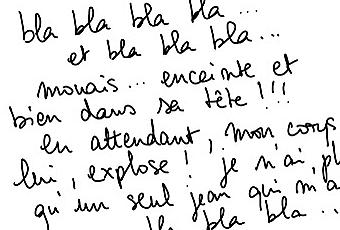 bla bla bla bla ...
et bla bla bla ...
mouais ... enceinte et
bien dans sa tête !!!
en attendant, mon corps
lui, explose ! je n'ai pl
qu'un seul jean qui m'a
bla bla ..